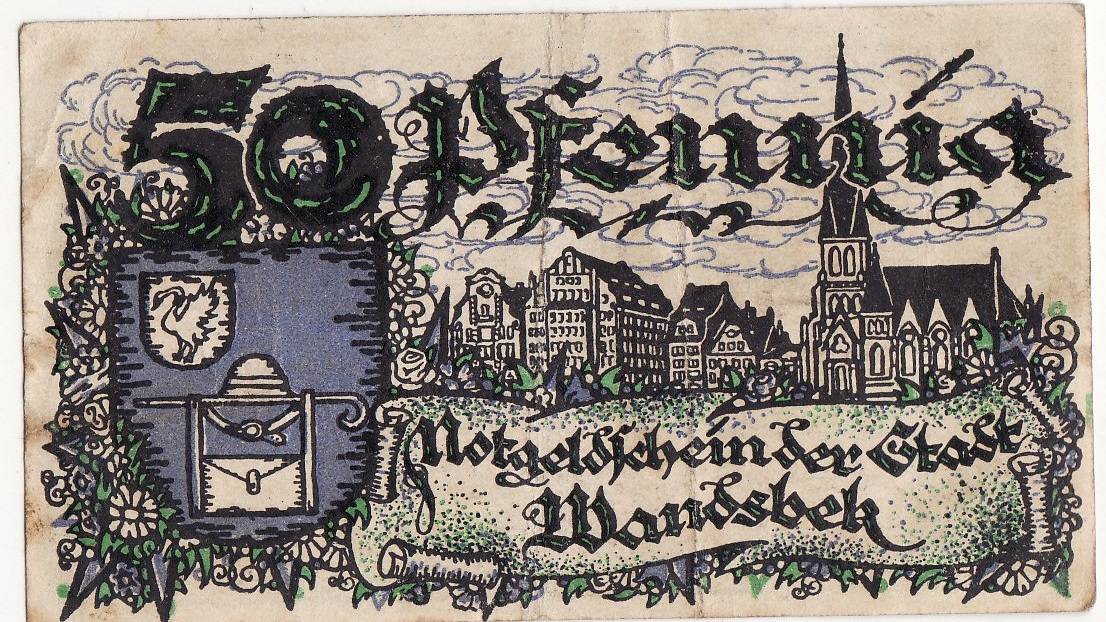 50 Pfennig
Notgeldschein der Stadt
Wandsbek